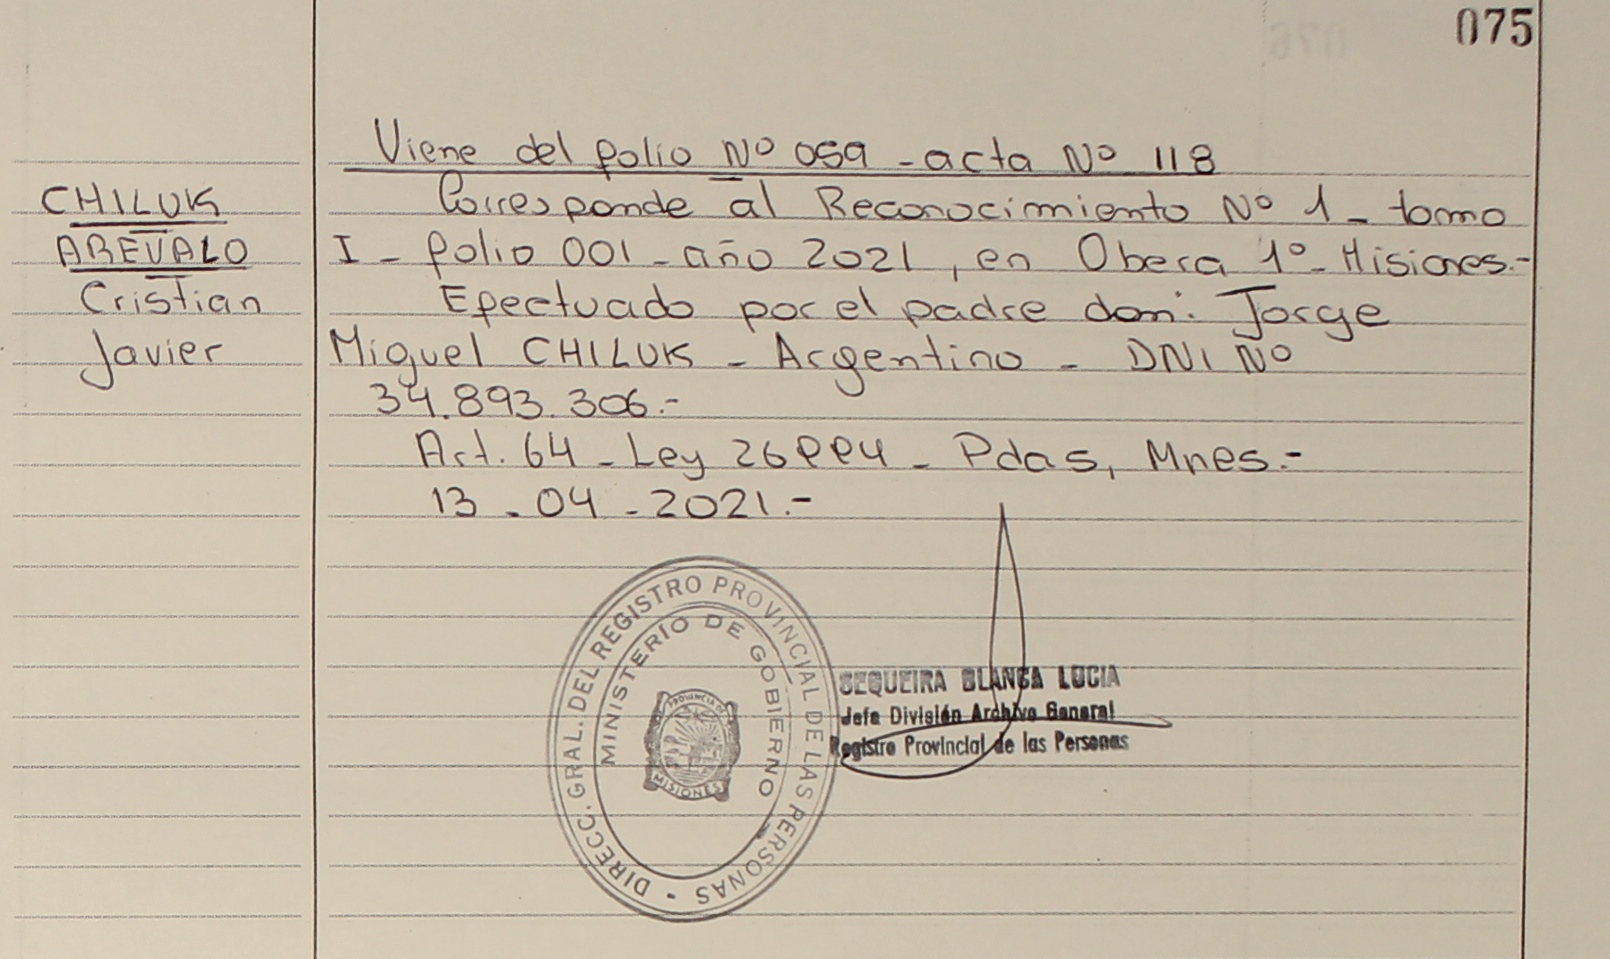 075
Viene del folio Nº 059 - acta Nº 118
CHILUK
AREVALO
Cristian
Javier
Corresponde al Reconocimiento Nº 1 - tomo
I - folio 001 - año 2021, en Obera 1º - Misiones.-
Efectuado por el padre don: Jorge
Miguel CHILUK - Argentino - DNI Nº
34.893.306.-
Art. 64 - Ley 26994 - Pdas, Mnes.-
13 - 04 - 2021.-
DIRECC. GRAL. DEL REGISTRO PROVINCIAL DE LAS PERSONAS -
MINISTERIO DE GOBIERNO
PROVINCIA DE
MISIONES
SEQUEIRA BLANCA LUCIA
Jefa División Archivo General
Registro Provincial de las Personas